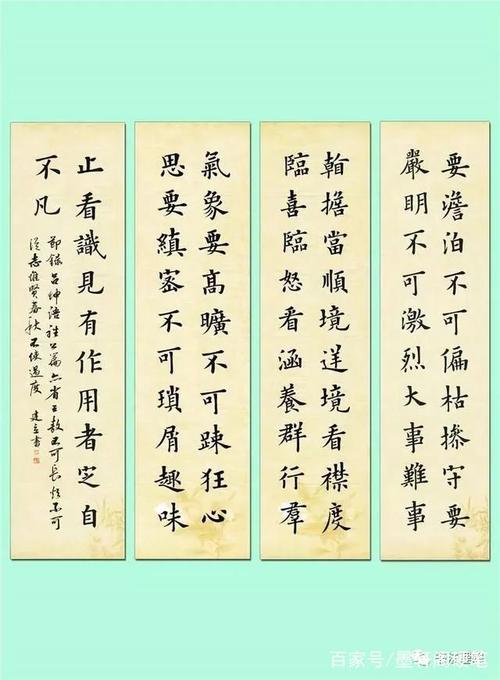 氣象要高曠不可踈狂心
思要縝密不可瑣屑趣味
要澹泊不可偏枯操守要
嚴明不可激烈大事難事
翰擔當順境逆境看襟度
臨喜臨怒看涵養群行羣
止看識見有作用者定自
不凡
節錄呂坤語敖不可長欲不可
從志過度
建立書
百家号/墨